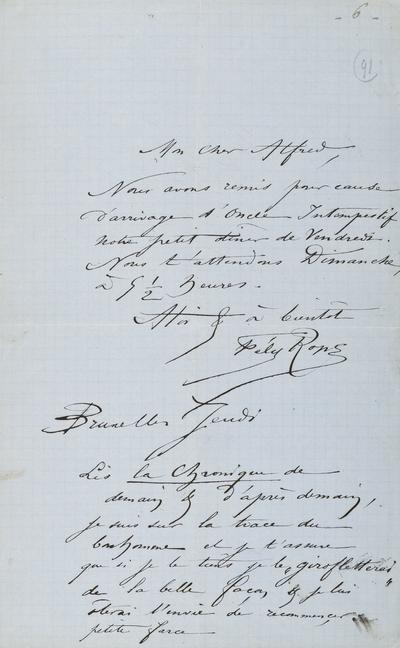 - 6 -
91
Mon cher Alfred,
Nous avons remis pour cause
d'arrivage d'Oncle Intempestif
notre petit dîner de Vendredi.
Nous t'attendons Dimanche,
à 5 1/2 heures.
A toi & à bientôt
Fély Rops
Bruxelles Jeudi
Lis la Chronique de
demain & d'après demain,
je suis sur la trace du
bonhomme et je t'assure
que si je le tiens je le „girofletterai"
de la belle façon & je lui
ôterai l'envie de recommencer
petite farce